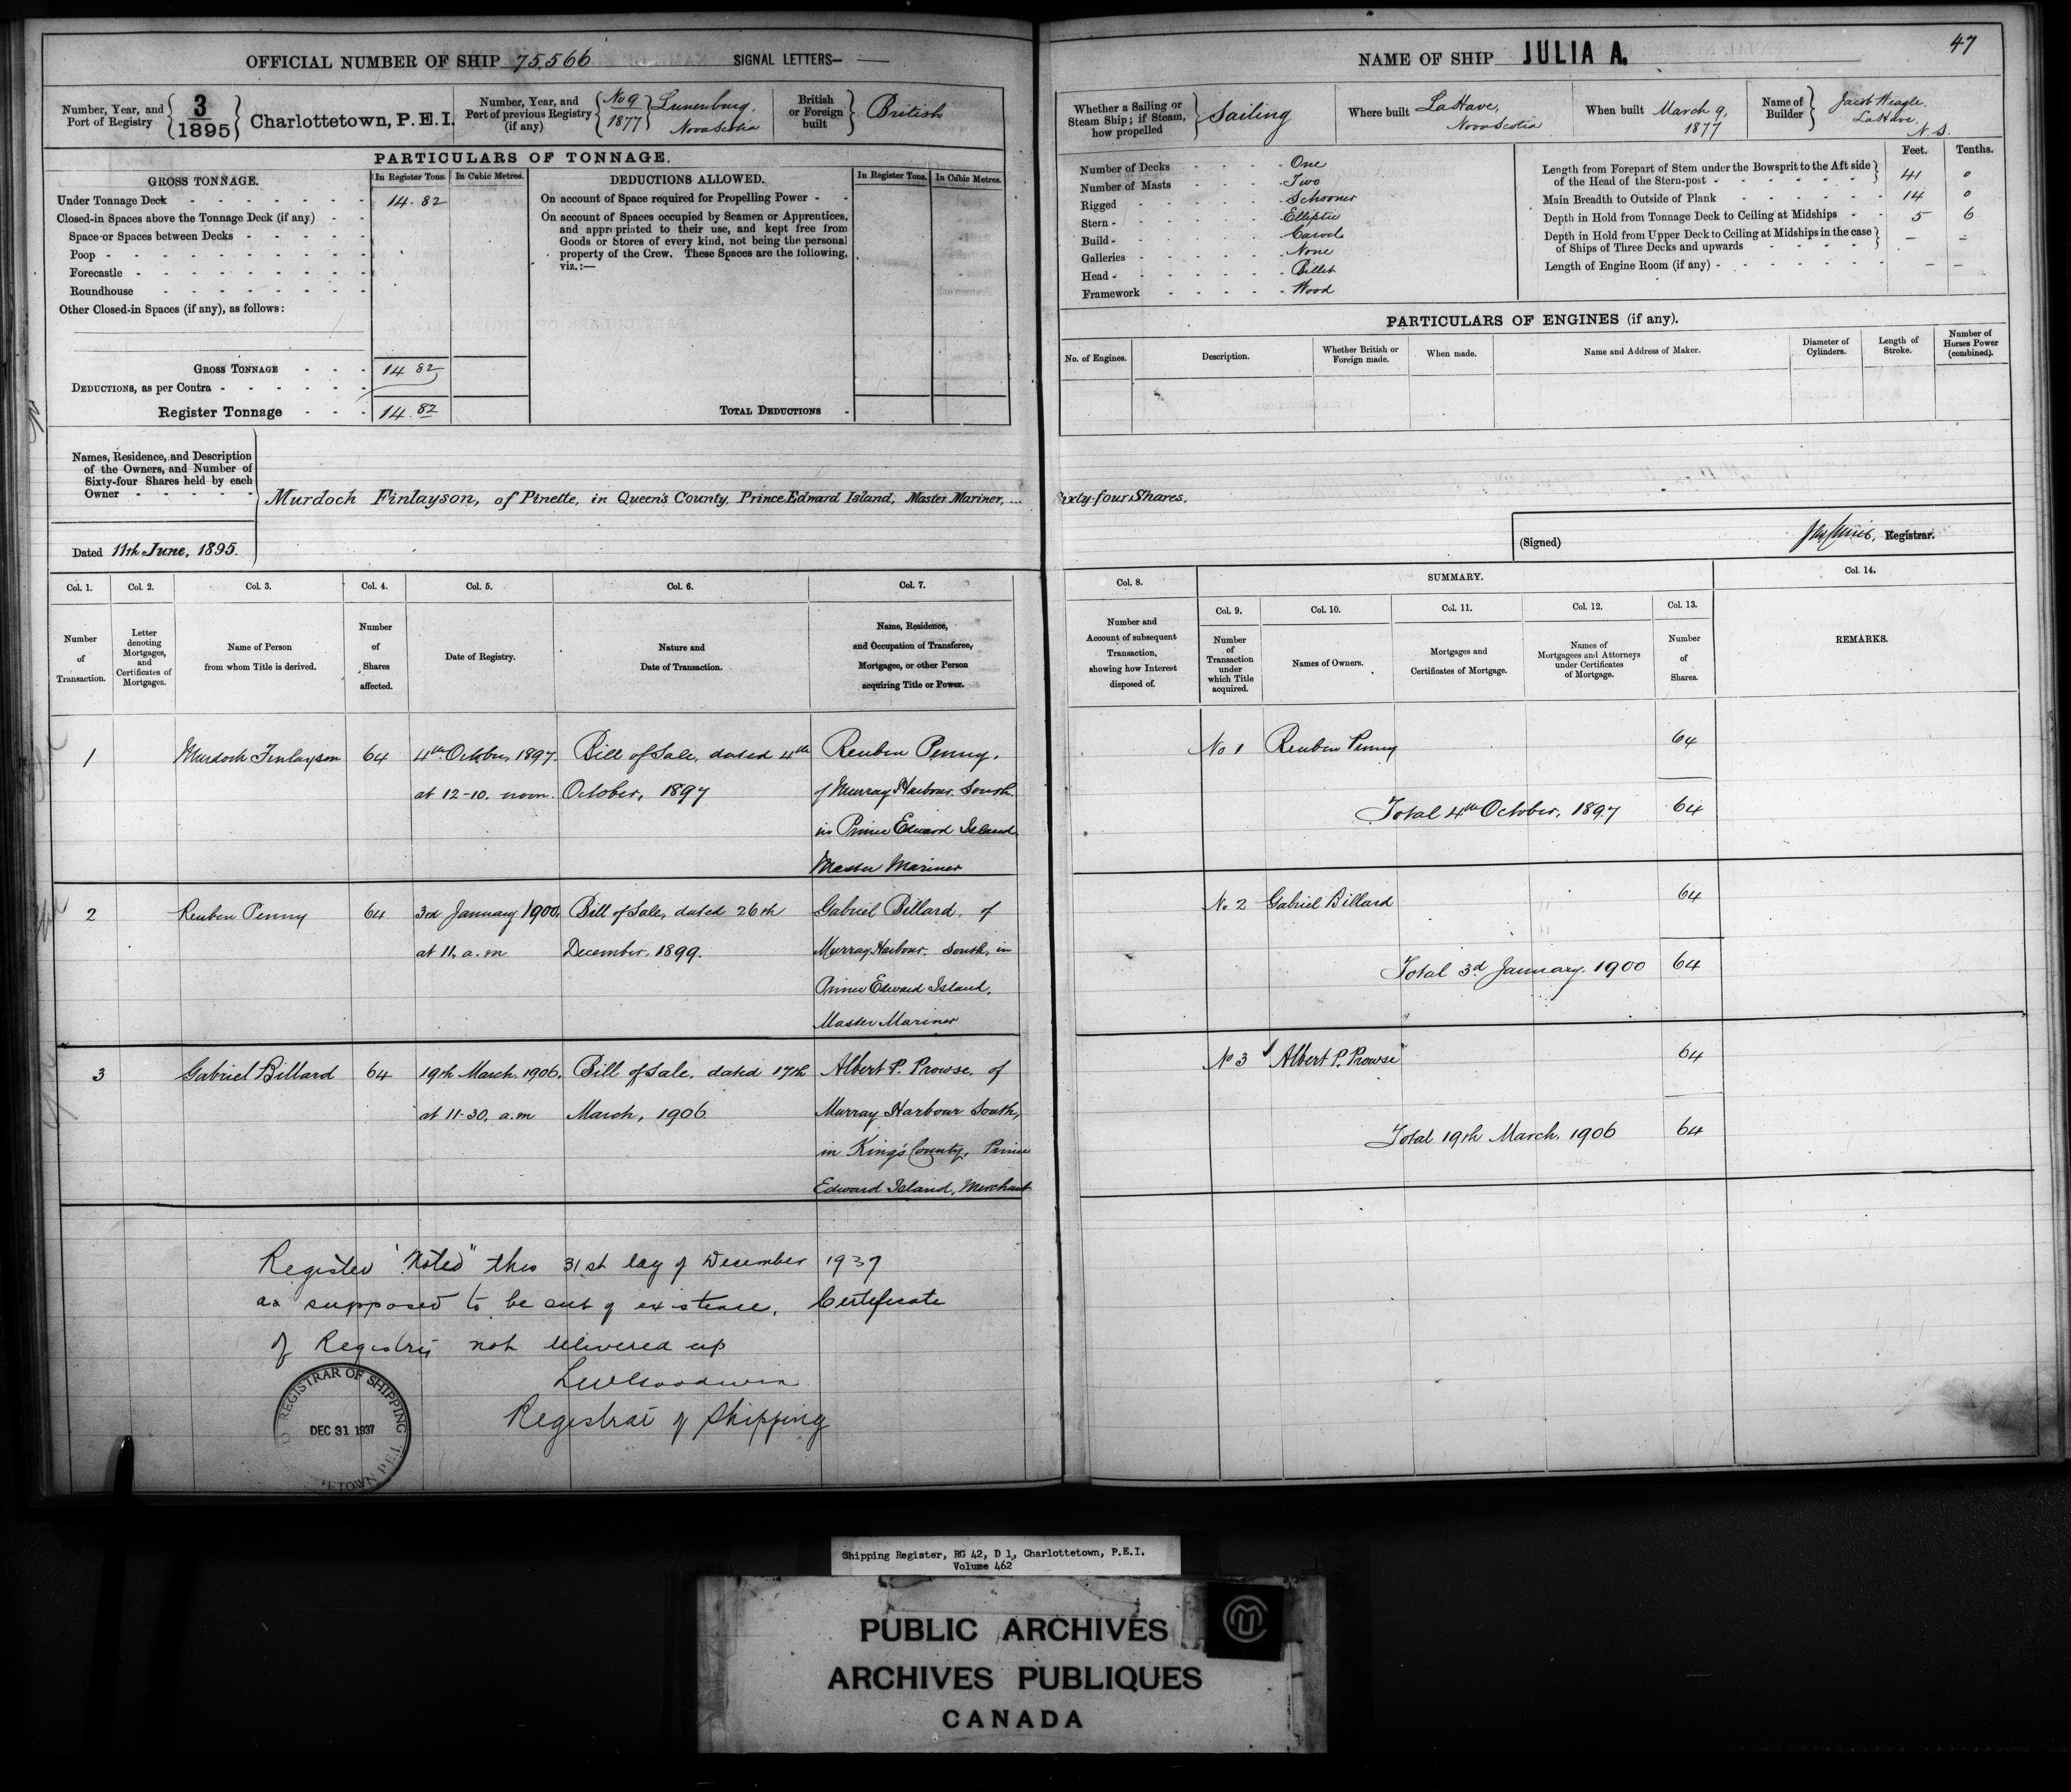 OFFICIAL NUMBER OF SHIP 75,566 SIGNAL LETTERS— —
Number, Year, and Port of Registry 3/1895 Charlottetown, P.E.I.
Number, Year, and Port of previous Registry (if any) No 9/1877 Lunenburg, Nova Scotia
British or Foreign built British
PARTICULARS OF TONNAGE.
GROSS TONNAGE. In Register Tons. In Cubic Metres.
Under Tonnage Deck 14.82
Closed-in Spaces above the Tonnage Deck (if any)
Space or Spaces between Decks
Poop
Forecastle
Roundhouse
Other Closed-in Spaces (if any), as follows:
GROSS TONNAGE 14.82
DEDUCTIONS, as per Contra
Register Tonnage 14.82
DEDUCTIONS ALLOWED. In Register Tons. In Cubic Metres.
On account of Space required for Propelling Power
On account of Spaces occupied by Seamen or Apprentices,
and appropriated to their use, and kept free from
Goods or Stores of every kind, not being the personal
property of the Crew. These Spaces are the following,
viz.:—
TOTAL DEDUCTIONS
NAME OF SHIP JULIA A.
47
Whether a Sailing or Steam Ship; if Steam, how propelled Sailing
Where built LaHave, Nova Scotia
When built March 9, 1877
Name of Builder Jacob Weagle. LaHave, N.S.
Number of Decks One
Number of Masts Two
Rigged Schooner
Stern Elliptic
Build Carvel
Galleries None
Head Billet
Framework Wood
Feet. Tenths.
Length from Forepart of Stem under the Bowsprit to the Aft side
of the Head of the Stern-post 41 0
Main Breadth to Outside of Plank 14 0
Depth in Hold from Tonnage Deck to Ceiling at Midships 5 6
Depth in Hold from Upper Deck to Ceiling at Midships in the case
of Ships of Three Decks and upwards — —
Length of Engine Room (if any) — —
PARTICULARS OF ENGINES (if any).
No. of Engines. Description. Whether British or Foreign made. When made. Name and Address of Maker. Diameter of Cylinders. Length of Stroke. Number of Horses Power (combined).
Names, Residence, and Description
of the Owners, and Number of
Sixty-four Shares held by each
Owner
Murdoch Finlayson, of Pinette, in Queen's County, Prince Edward Island, Master Mariner, ... Sixty-four Shares.
Dated 11th June, 1895.
(Signed) Registrar.
Col. 1. Col. 2. Col. 3. Col. 4. Col. 5. Col. 6. Col. 7.
Number of Transaction.
Letter denoting Mortgages, and Certificates of Mortgages.
Name of Person from whom Title is derived.
Number of Shares affected.
Date of Registry.
Nature and Date of Transaction.
Name, Residence, and Occupation of Transferee, Mortgagee, or other Person acquiring Title or Power.
Col. 8. SUMMARY. Col. 14.
Col. 9. Col. 10. Col. 11. Col. 12. Col. 13.
Number and Account of subsequent Transaction, showing how Interest disposed of.
Number of Transaction under which Title acquired.
Names of Owners.
Mortgages and Certificates of Mortgage.
Names of Mortgagees and Attorneys under Certificates of Mortgage.
Number of Shares.
REMARKS.
1 Murdoch Finlayson 64 4th October, 1897. Bill of Sale, dated 4th Reuben Penny,
at 12-10. noon. October, 1897 of Murray Harbour South.
in Prince Edward Island
Master Mariner
No 1 Reuben Penny 64
Total 4th October, 1897 64
2 Reuben Penny 64 3rd January 1900, Bill of Sale, dated 26th Gabriel Billard, of
at 11. a.m December, 1899. Murray Harbour South, in
Prince Edward Island,
Master Mariner
No 2 Gabriel Billard 64
Total 3d January, 1900 64
3 Gabriel Billard 64 19th March, 1906, Bill of Sale, dated 17th Albert P. Prowse, of
at 11-30. a.m March, 1906 Murray Harbour South,
in King's County, Prince
Edward Island, Merchant
No 3 Albert P. Prowse 64
Total 19th March, 1906 64
Register "Noted" this 31st day of December 1937
as supposed to be out of existence. Certificate
of Registry not delivered up
Registrar of Shipping
REGISTRAR OF SHIPPING
DEC 31 1937
Shipping Register, RG 42, D 1, Charlottetown, P.E.I.
Volume 462
PUBLIC ARCHIVES
ARCHIVES PUBLIQUES
CANADA